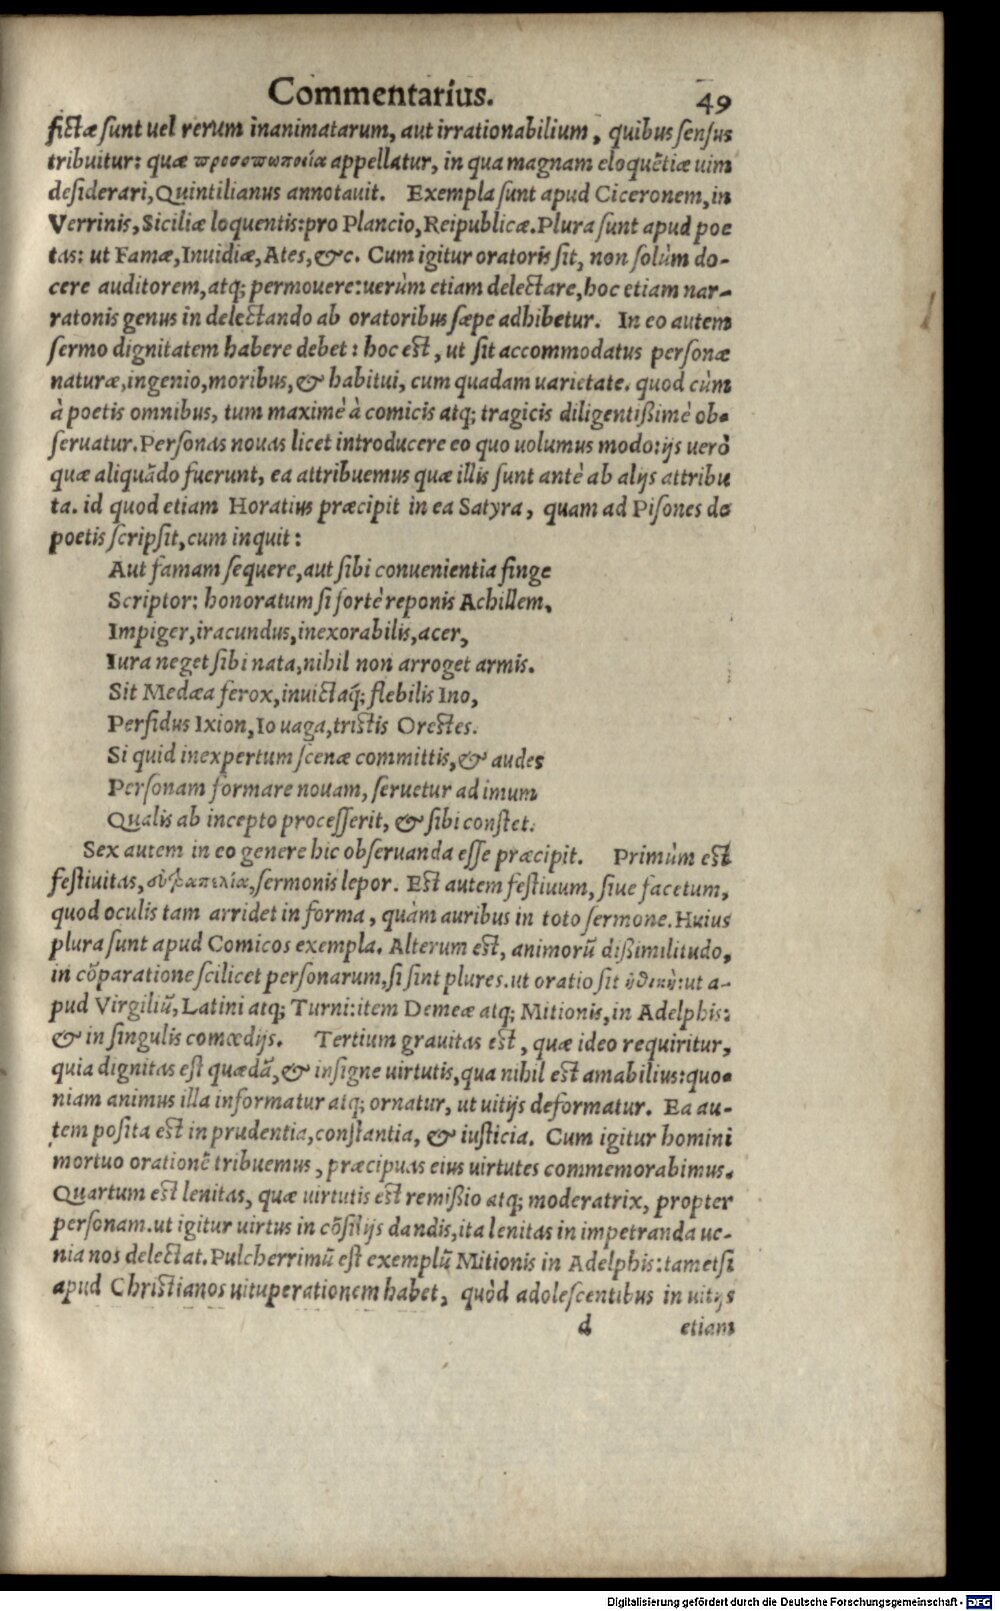 Commentarius. 49
fictæ sunt uel rerum inanimatarum, aut irrationabilium, quibus sensus
tribuitur: quæ προσωποποιΐα appellatur, in qua magnam eloquẽtiæ uim
desiderari, Quintilianus annotauit. Exempla sunt apud Ciceronem, in
Verrinis, Siciliæ loquentis: pro Plancio, Reipublicæ. Plura sunt apud poe
tas: ut Famæ, Inuidiæ, Ates, &c. Cum igitur oratoris sit, non solùm do-
cere auditorem, atq; permouere: uerùm etiam delectare, hoc etiam nar-
rationis genus in delectando ab oratoribus sæpe adhibetur. In eo autem
sermo dignitatem habere debet: hoc est, ut sit accommodatus personæ
naturæ, ingenio, moribus, & habitui, cum quadam uarietate. quod cùm
à poetis omnibus, tum maximè à comicis atq; tragicis diligentißimè ob-
seruatur. Personas nouas licet introducere eo quo uolumus modo: ijs uerò
quæ aliquãdo fuerunt, ea attribuemus quæ illis sunt antè ab alijs attribu
ta. id quod etiam Horatius præcipit in ea Satyra, quam ad Pisones de
poetis scripsit, cum inquit:
Aut famam sequere, aut sibi conuenientia finge
Scriptor: honoratum si fortè reponis Achillem,
Impiger, iracundus, inexorabilis, acer,
Iura neget sibi nata, nihil non arroget armis.
Sit Medæa ferox, inuictaq́; flebilis Ino,
Perfidus Ixion, Io uaga, tristis Orestes.
Si quid inexpertum scenæ committis, & audes
Personam formare nouam, seruetur ad imum
Qualis ab incepto processerit, & sibi constet.
Sex autem in eo genere hic obseruanda esse præcipit. Primùm est
festiuitas, εὐτραπελία, sermonis lepor. Est autem festiuum, siue facetum,
quod oculis tam arridet in forma, quàm auribus in toto sermone. Huius
plura sunt apud Comicos exempla. Alterum est, animorũ dißimilitudo,
in cõparatione scilicet personarum, si sint plures. ut oratio sit ἠθικὴ: ut a-
pud Virgiliũ, Latini atq; Turni: item Demeæ atq; Mitionis, in Adelphis:
& in singulis comœdijs. Tertium grauitas est, quæ ideo requiritur,
quia dignitas est quædã, & insigne uirtutis, qua nihil est amabilius: quo-
niam animus illa informatur atq; ornatur, ut uitijs deformatur. Ea au-
tem posita est in prudentia, constantia, & iusticia. Cum igitur homini
mortuo orationẽ tribuemus, præcipuas eius uirtutes commemorabimus.
Quartum est lenitas, quæ uirtutis est remißio atq; moderatrix, propter
personam. ut igitur uirtus in cõsilijs dandis, ita lenitas in impetranda ue-
nia nos delectat. Pulcherrimũ est exemplũ Mitionis in Adelphis: tametsi
apud Christianos uituperationem habet, quòd adolescentibus in uitijs
d etiam
Digitalisierung gefördert durch die Deutsche Forschungsgemeinschaft - DFG